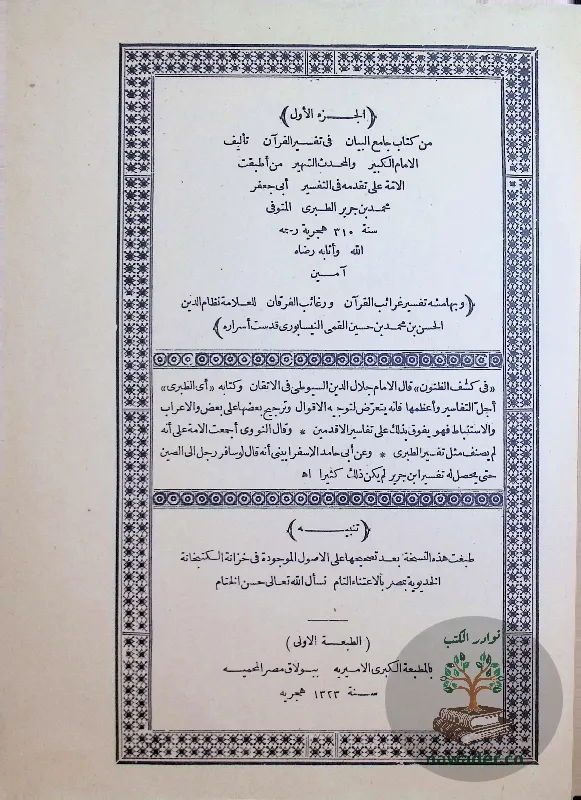 ﴿الجزء الأول﴾
من كتاب جامع البيان في تفسير القرآن تأليف
الامام الكبير والمحدث الشهير من أطبقت
الامة على تقدمه في التفسير أبي جعفر
محمد بن جرير الطبري المتوفى
سنة ٣١٠ هجرية رحمه
الله وأثابه رضاه
آمين
﴿وبهامشه تفسير غرائب القرآن ورغائب الفرقان للعلامة نظام الدين
الحسن بن محمد بن حسين القمي النيسابوري قدست أسراره﴾
«في كشف الظنون» قال الامام جلال الدين السيوطي في الاتقان وكتابه «أي الطبري»
أجل التفاسير وأعظمها فانه يتعرض لتوجيه الاقوال وترجيح بعضها على بعض والاعراب
والاستنباط فهو يفوق بذلك على تفاسير الاقدمين * وقال النووي أجمعت الامة على أنه
لم يصنف مثل تفسير الطبري * وعن أبي حامد الاسفرايني أنه قال لو سافر رجل الى الصين
حتى يحصل له تفسير ابن جرير لم يكن ذلك كثيرا اه
﴿تنبيه﴾
طبعت هذه النسخة بعد تصحيحها على الاصول الموجودة في خزانة الكتبخانة
الخديوية بمصر بالاعتناء التام نسأل الله تعالى حسن الختام
(الطبعة الاولى)
بالمطبعة الكبرى الاميرية ببولاق مصر المحمية
سنة ١٣٢٣ هجرية
نوادر الكتب
nawader.co